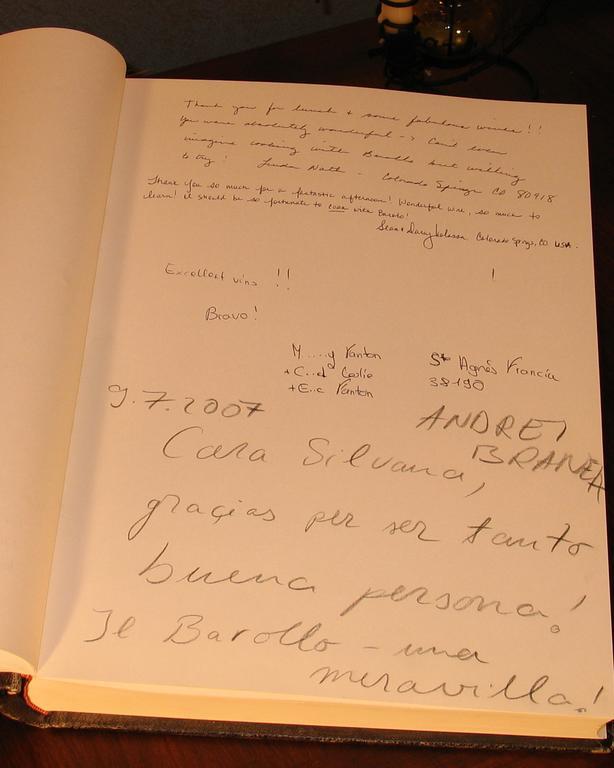 Thank you for lunch + some fabulous wines!!
You were absolutely wonderful → Can't even
imagine cooking with Barollo but willing
to try! Linda Nath - Colorado Springs CO 80918
Thank you so much for a fantastic afternoon! Wonderful wine, so much to
learn! I should be so fortunate to cook with Barolo!
Sean + Colorado Springs, CO USA.
Excellent vins !! !
Bravo!
M.....y Vanton Ste Agnés Francia
+C...d Coslio 38190
+E..c Vanton
9.7.2007 ANDREJ
BRANEA
Cara Silvana,
graçias per ser tanto
buena persona!
Il Barollo - una
meravilla!